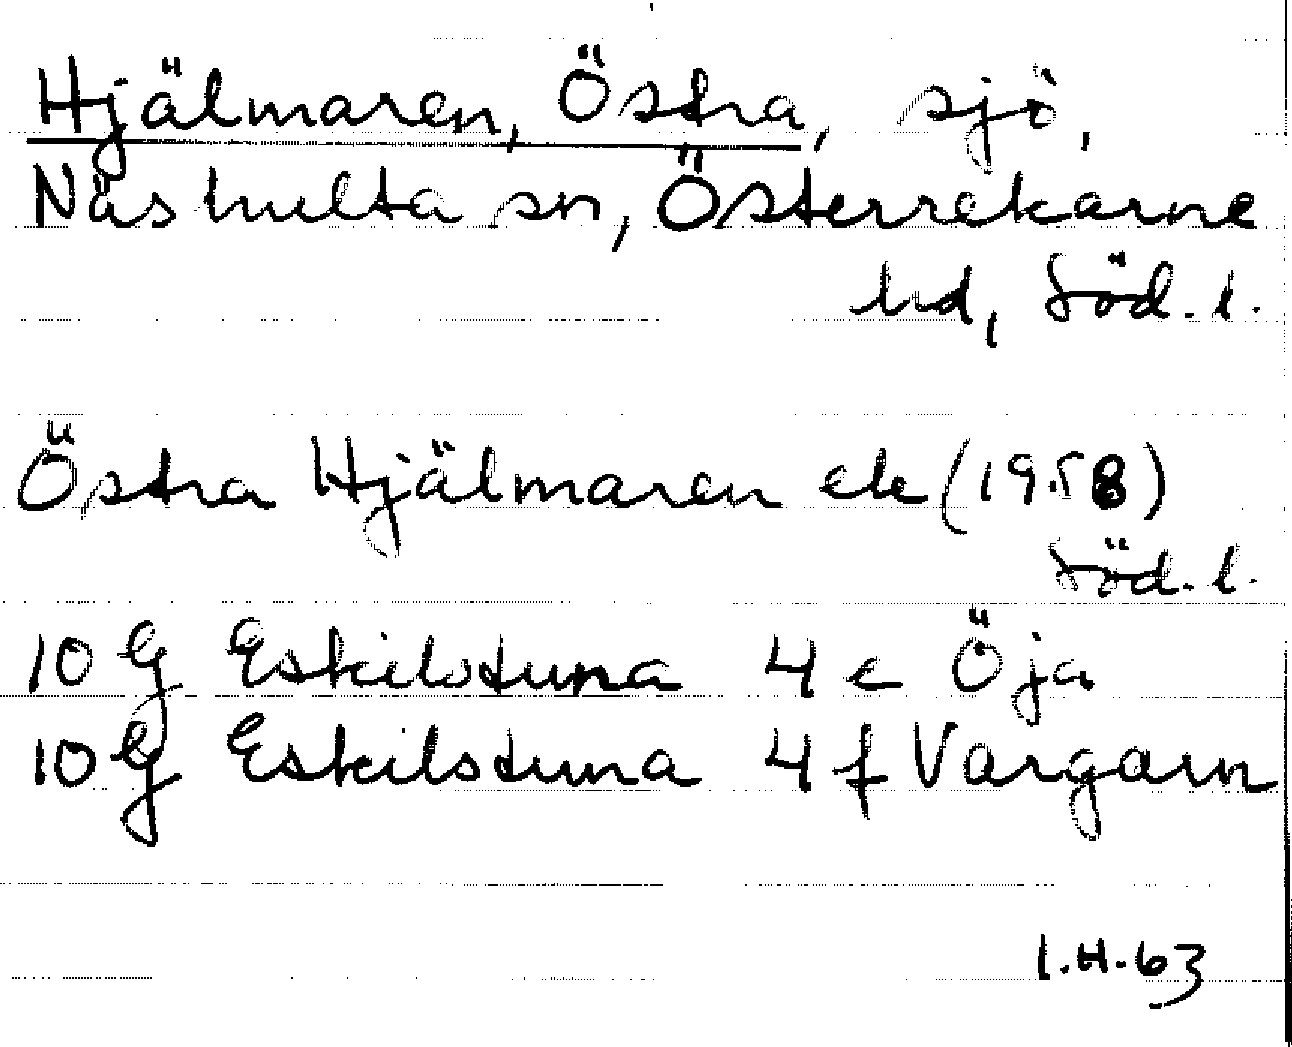 Hjälmaren, Östra, sjö,
Näshulta sn, Österrekarne
hd, Söd. l.
Östra Hjälmaren ek (1958)
Söd. l.
10 G Eskilstuna 4 e Öja
10 G Eskilstuna 4 f Vargarn
I.H. 63